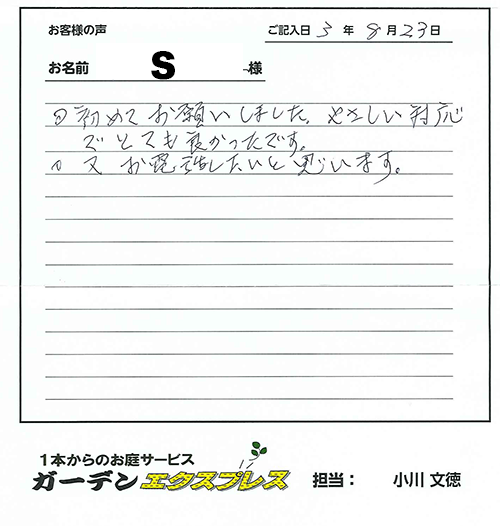 お客様の声
ご記入日 3 年 8 月 23 日
お名前 S 様
① 初めてお願いしました。やさしい対応
でとても良かったです。
① 又 お電話したいと思います。
1本からのお庭サービス
ガーデンエクスプレス 担当： 小川 文徳